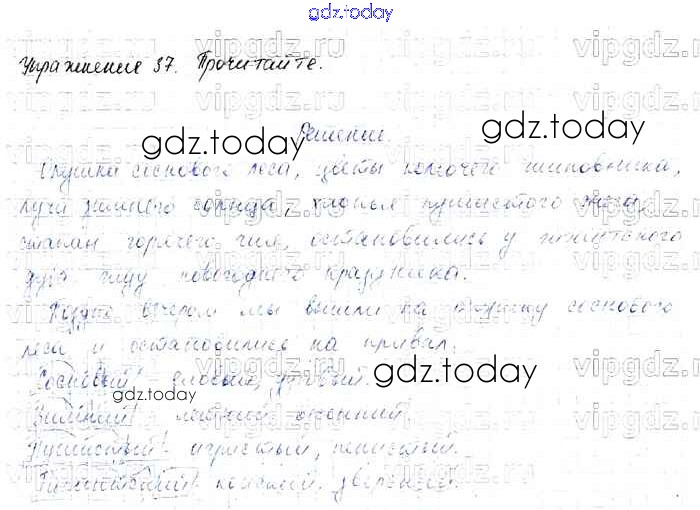 gdz.today
Упражнение 37. Прочитайте.
Решение.
Опушка соснового леса, цветы колючего шиповника,
лучи зимнего солнца, хлопья пушистого снега,
стакан горячего чая, остановились у гигантского
дуба, ждут новогоднего праздника.
Поздно вечером мы вышли на опушку соснового
леса и остановились на привал.
Сосновый, еловый, дубовый.
Зимний, летний, осенний.
Пушистый, игристый,
Гигантский,
gdz.today
gdz.today
gdz.today
gdz.today
gdz.today
vipgdz.ru